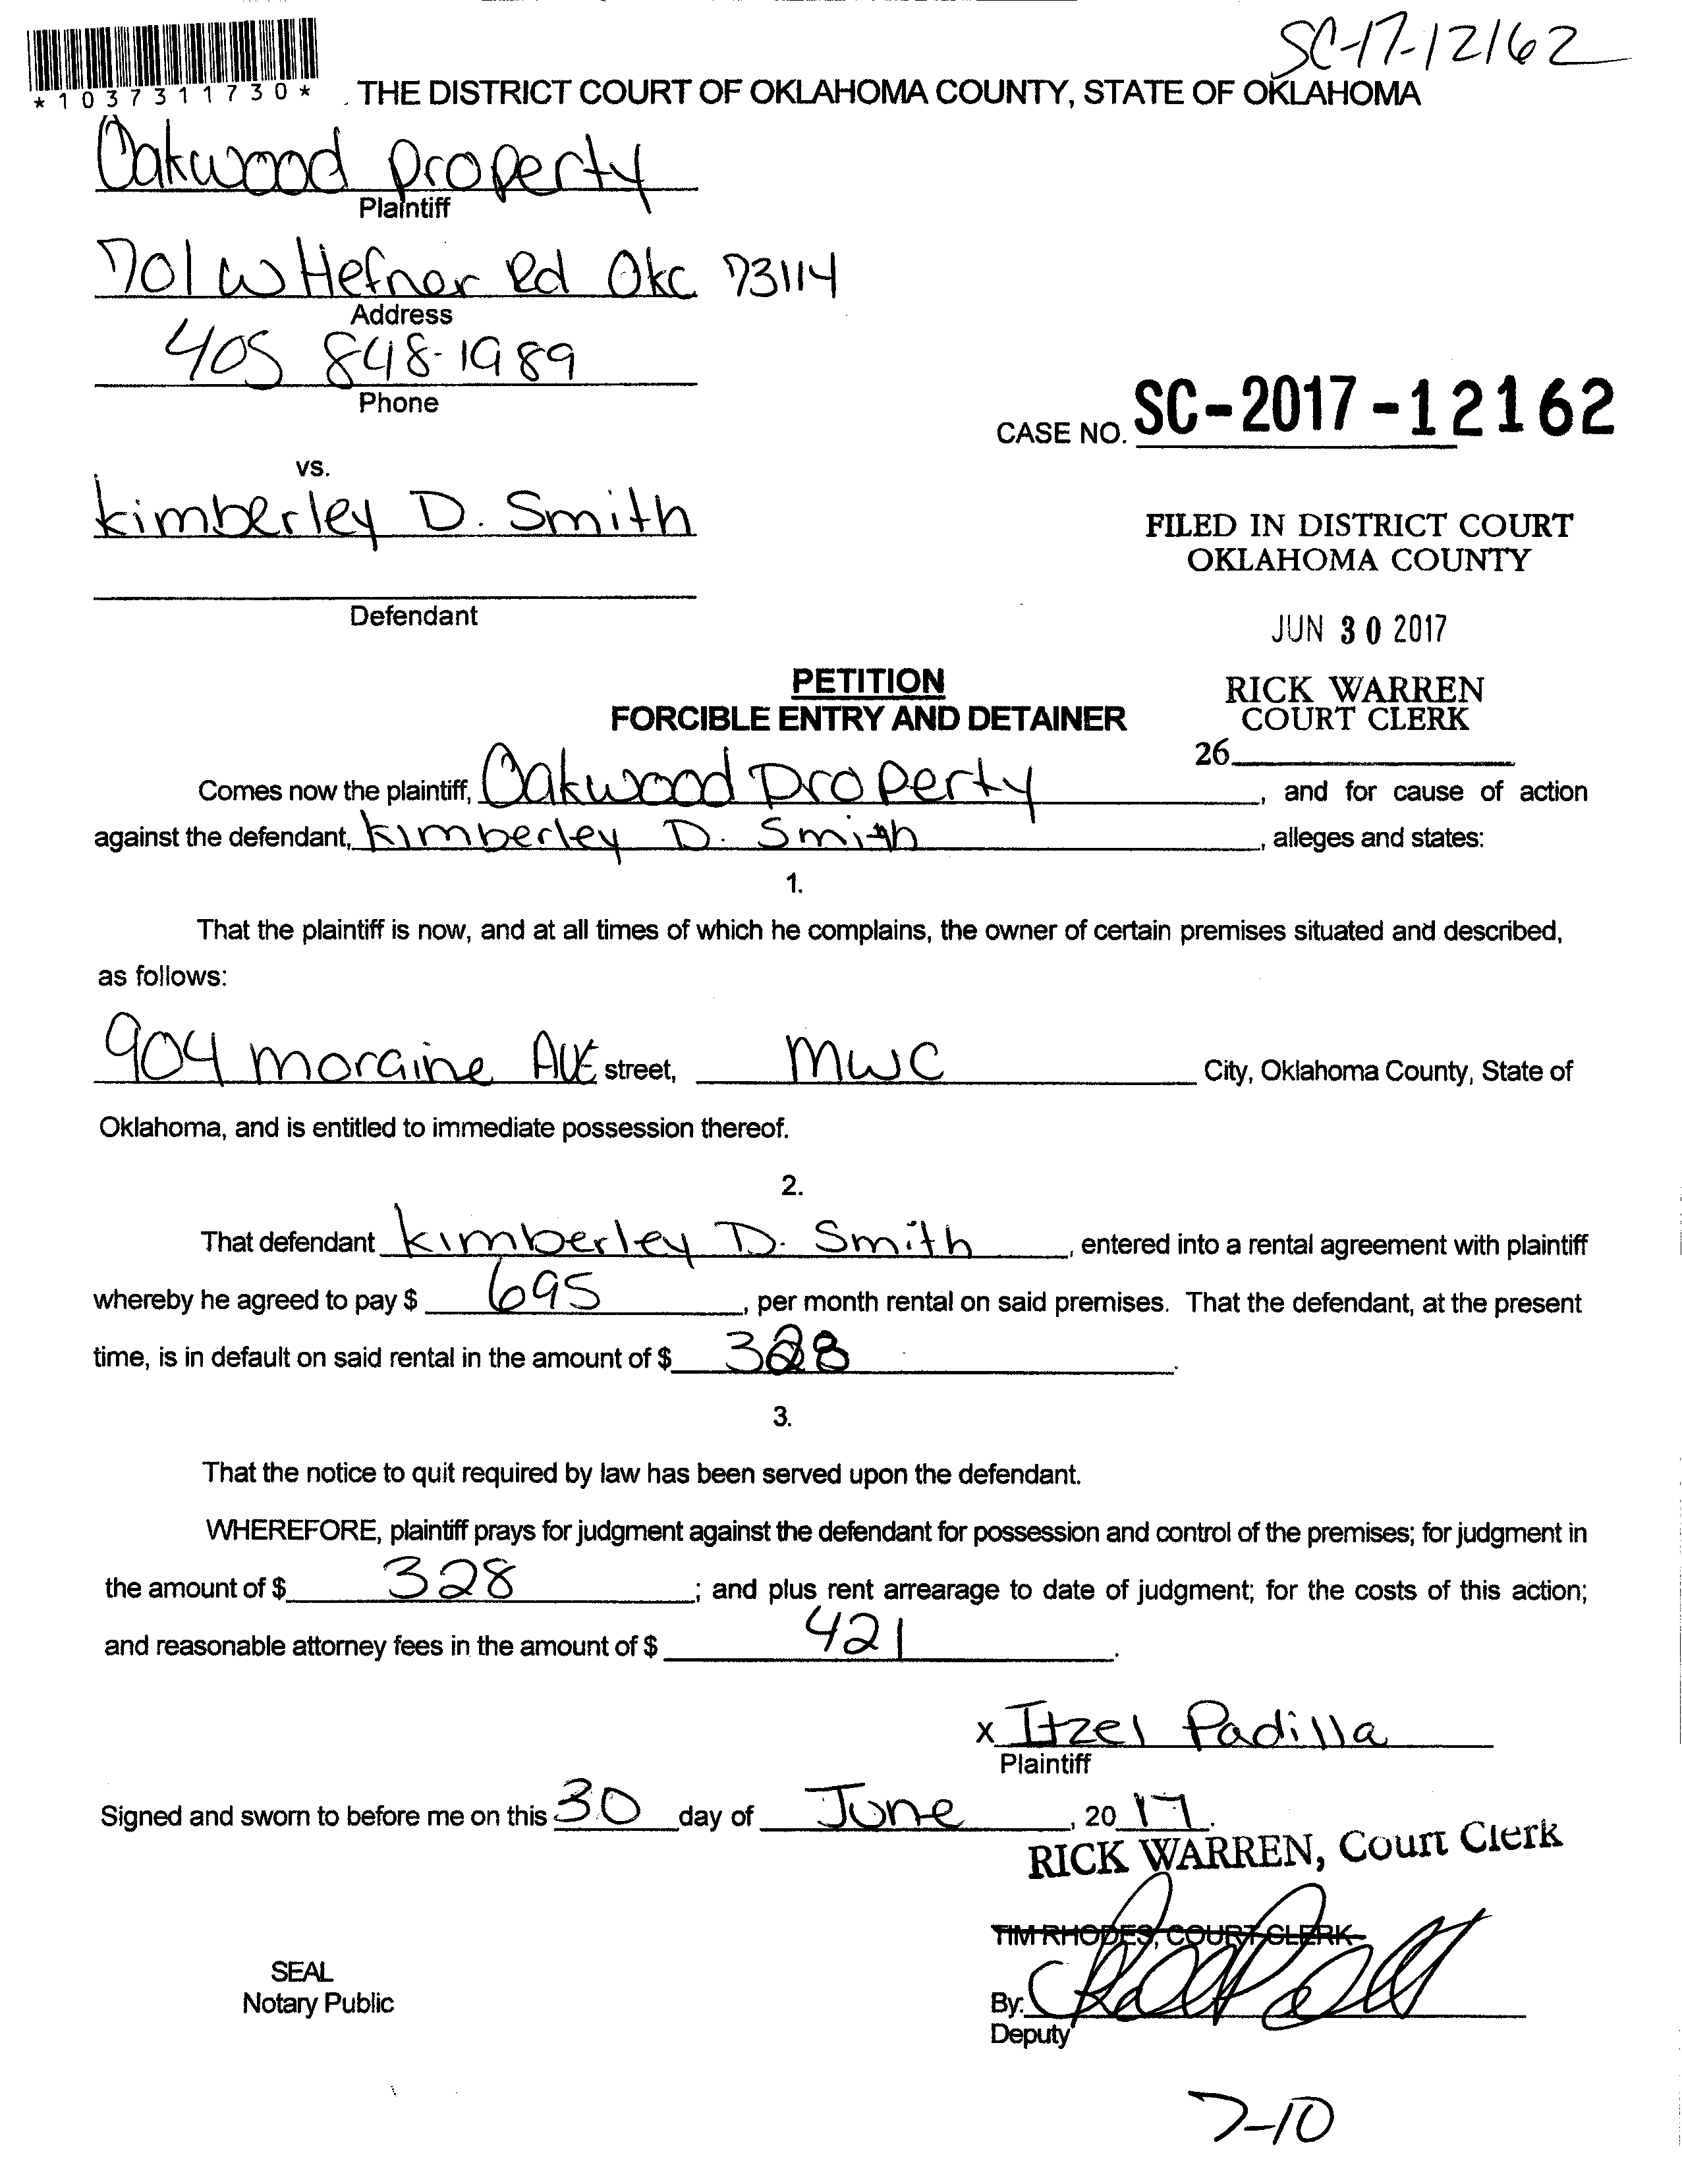 SC-17-12162
*1037311730*
THE DISTRICT COURT OF OKLAHOMA COUNTY, STATE OF OKLAHOMA
Oakwood Property
Plaintiff
701 W Hefner Rd Okc 73114
Address
405 848-1989
Phone
CASE NO. SC-2017-12162
vs.
Kimberley D. Smith
FILED IN DISTRICT COURT
OKLAHOMA COUNTY
Defendant
JUN 30 2017
PETITION
FORCIBLE ENTRY AND DETAINER
RICK WARREN
COURT CLERK
26
Comes now the plaintiff, Oakwood Property, and for cause of action
against the defendant, Kimberley D. Smith, alleges and states:
1.
That the plaintiff is now, and at all times of which he complains, the owner of certain premises situated and described,
as follows:
904 moraine Ave street, MWC City, Oklahoma County, State of
Oklahoma, and is entitled to immediate possession thereof.
2.
That defendant Kimberley D. Smith, entered into a rental agreement with plaintiff
whereby he agreed to pay $ 695, per month rental on said premises. That the defendant, at the present
time, is in default on said rental in the amount of $ 328.
3.
That the notice to quit required by law has been served upon the defendant.
WHEREFORE, plaintiff prays for judgment against the defendant for possession and control of the premises; for judgment in
the amount of $ 328; and plus rent arrearage to date of judgment; for the costs of this action;
and reasonable attorney fees in the amount of $ 421.
x Itzel Padilla
Plaintiff
Signed and sworn to before me on this 30 day of June, 2017.
RICK WARREN, Court Clerk
TIM RHODES, COURT CLERK
SEAL
Notary Public
By:
Deputy
7-10